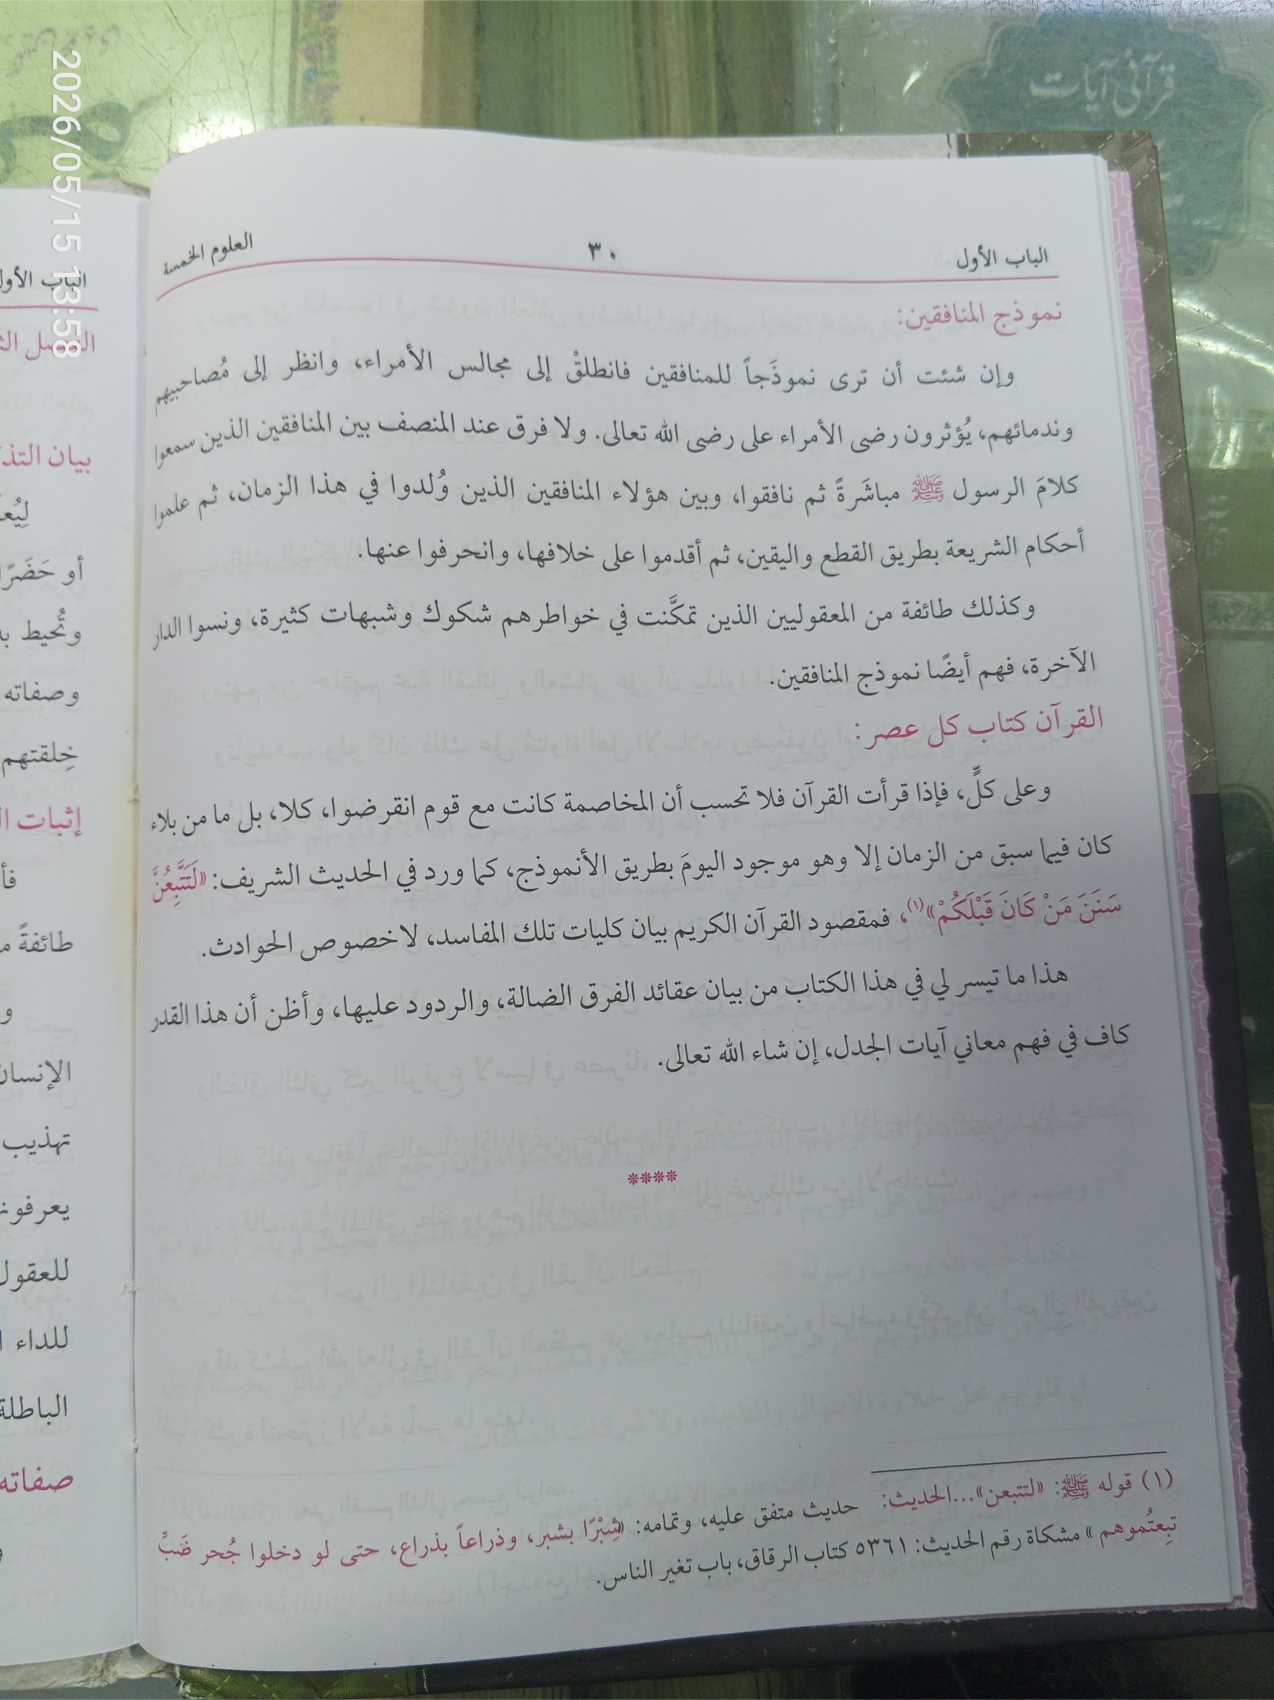 2026/05/15 13:58
قرآنی آیات
الباب الأول
٣٠
العلوم الخمسة
نموذج المنافقين:
وإن شئت أن ترى نموذَجاً للمنافقين فانطلقْ إلى مجالس الأمراء، وانظر إلى مُصاحبيهم
وندمائهم، يُؤثرون رضى الأمراء على رضى الله تعالى. ولا فرق عند المنصف بين المنافقين الذين سمعوا
كلامَ الرسول ﷺ مباشَرةً ثم نافقوا، وبين هؤلاء المنافقين الذين وُلدوا في هذا الزمان، ثم علموا
أحكام الشريعة بطريق القطع واليقين، ثم أقدموا على خلافها، وانحرفوا عنها.
وكذلك طائفة من المعقوليين الذين تمكَّنت في خواطرهم شكوك وشبهات كثيرة، ونسوا الدار
الآخرة، فهم أيضًا نموذج المنافقين.
القرآن كتاب كل عصر:
وعلى كلٍّ، فإذا قرأت القرآن فلا تحسب أن المخاصمة كانت مع قوم انقرضوا، كلا، بل ما من بلاء
كان فيما سبق من الزمان إلا وهو موجود اليومَ بطريق الأنموذج، كما ورد في الحديث الشريف: «لَتَتَّبِعُنَّ
سَنَنَ مَنْ كَانَ قَبْلَكُمْ»(١)، فمقصود القرآن الكريم بيان كليات تلك المفاسد، لا خصوص الحوادث.
هذا ما تيسر لي في هذا الكتاب من بيان عقائد الفرق الضالة، والردود عليها، وأظن أن هذا القدر
كاف في فهم معاني آيات الجدل، إن شاء الله تعالى.
****
(١) قوله ﷺ: «لتتبعن»...الحديث: حديث متفق عليه، وتمامه: «شِبْرًا بشبر، وذراعاً بذراع، حتى لو دخلوا جُحر ضَبٍّ
تبِعتُموهم» مشكاة رقم الحديث: ٥٣٦١ كتاب الرقاق، باب تغير الناس.
الباب الأول
بيان التذ
أو حَضَرًا
وتُحيط بد
وصفاته
خِلقتهم
إثبات ال
فأ
طائفةً م
و
الإنسان
تهذيب
يعرفونه
للعقول
للداء ا
الباطلة
صفاته